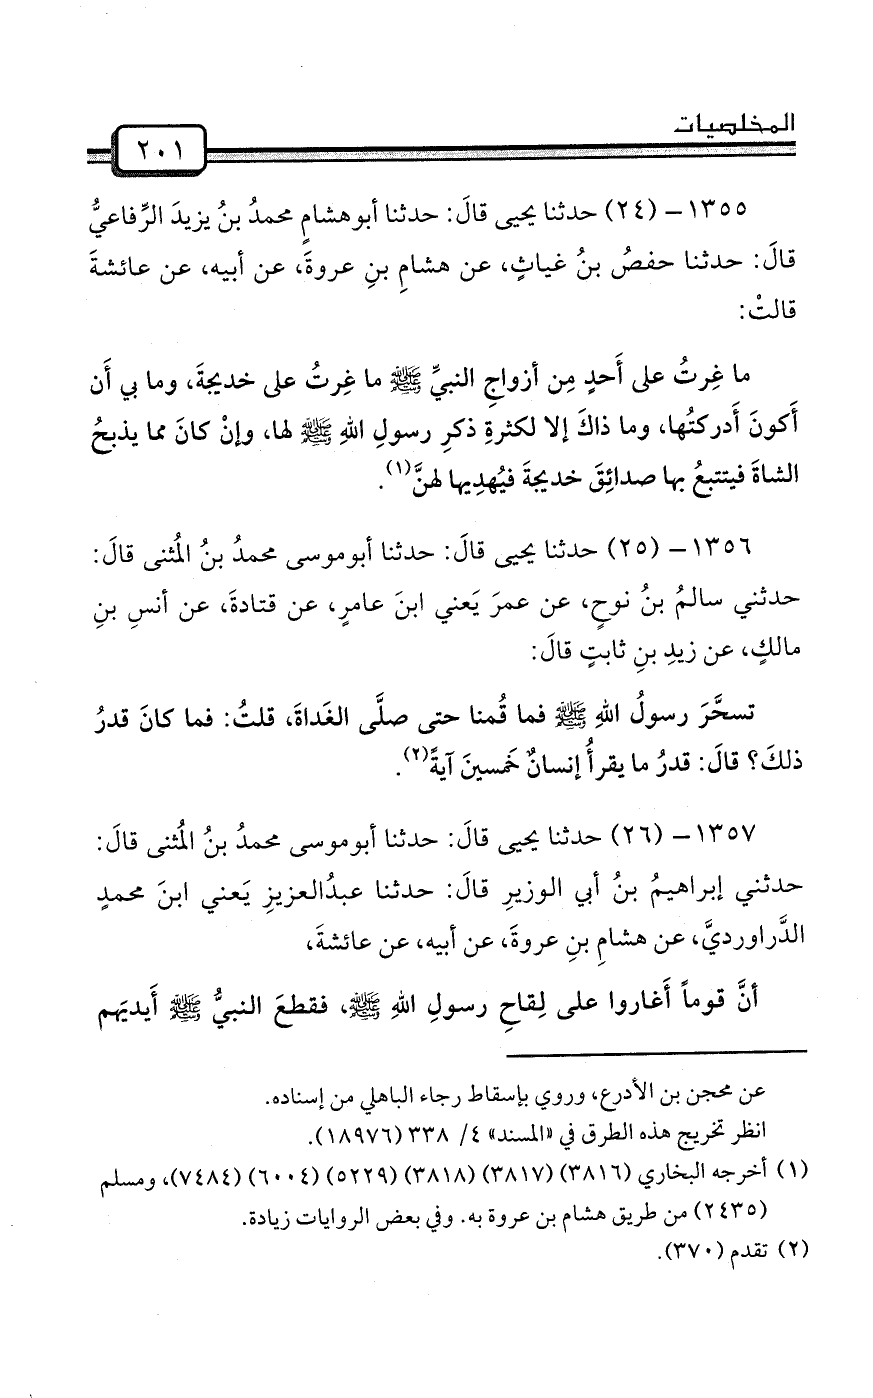 المخلصيات
٢٠١
١٣٥٥- (٢٤) حدثنا يحيى قالَ: حدثنا أبوهشامٍ محمدُ بنُ يزيدَ الرِّفاعيُّ
قالَ: حدثنا حفصُ بنُ غياثٍ، عن هشامِ بنِ عروةَ، عن أبيه، عن عائشةَ
قالتْ:
ما غِرتُ على أَحدٍ مِن أزواجِ النبيِّ ﷺ ما غِرتُ على خديجةَ، وما بي أَن
أَكونَ أَدركتُها، وما ذاكَ إلا لكثرةِ ذكرِ رسولِ اللهِ ﷺ لها، وإنْ كانَ مما يذبحُ
الشاةَ فيتتبعُ بها صدائِقَ خديجةَ فيُهدِيها لهنَّ(١).
١٣٥٦- (٢٥) حدثنا يحيى قالَ: حدثنا أبوموسى محمدُ بنُ المُثنى قالَ:
حدثني سالمُ بنُ نوحٍ، عن عمرَ يَعني ابنَ عامرٍ، عن قتادةَ، عن أنسِ بنِ
مالكٍ، عن زيدِ بنِ ثابتٍ قالَ:
تسحَّرَ رسولُ اللهِ ﷺ فما قُمنا حتى صلَّى الغَداةَ، قلتُ: فما كانَ قدرُ
ذلكَ؟ قالَ: قدرُ ما يقرأُ إنسانٌ خَمسينَ آيةً(٢).
١٣٥٧- (٢٦) حدثنا يحيى قالَ: حدثنا أبوموسى محمدُ بنُ المُثنى قالَ:
حدثني إبراهيمُ بنُ أبي الوزيرِ قالَ: حدثنا عبدُالعزيزِ يَعني ابنَ محمدٍ
الدَّراورديَّ، عن هشامِ بنِ عروةَ، عن أبيه، عن عائشةَ،
أنَّ قوماً أَغاروا على لِقاحِ رسولِ اللهِ ﷺ، فقطعَ النبيُّ ﷺ أَيديَهم
عن محجن بن الأدرع، وروي بإسقاط رجاء الباهلي من إسناده.
انظر تخريج هذه الطرق في «المسند» ٤/ ٣٣٨ (١٨٩٧٦).
(١) أخرجه البخاري (٣٨١٦) (٣٨١٧) (٣٨١٨) (٥٢٢٩) (٦٠٠٤) (٧٤٨٤)، ومسلم
(٢٤٣٥) من طريق هشام بن عروة به. وفي بعض الروايات زيادة.
(٢) تقدم (٣٧٠).